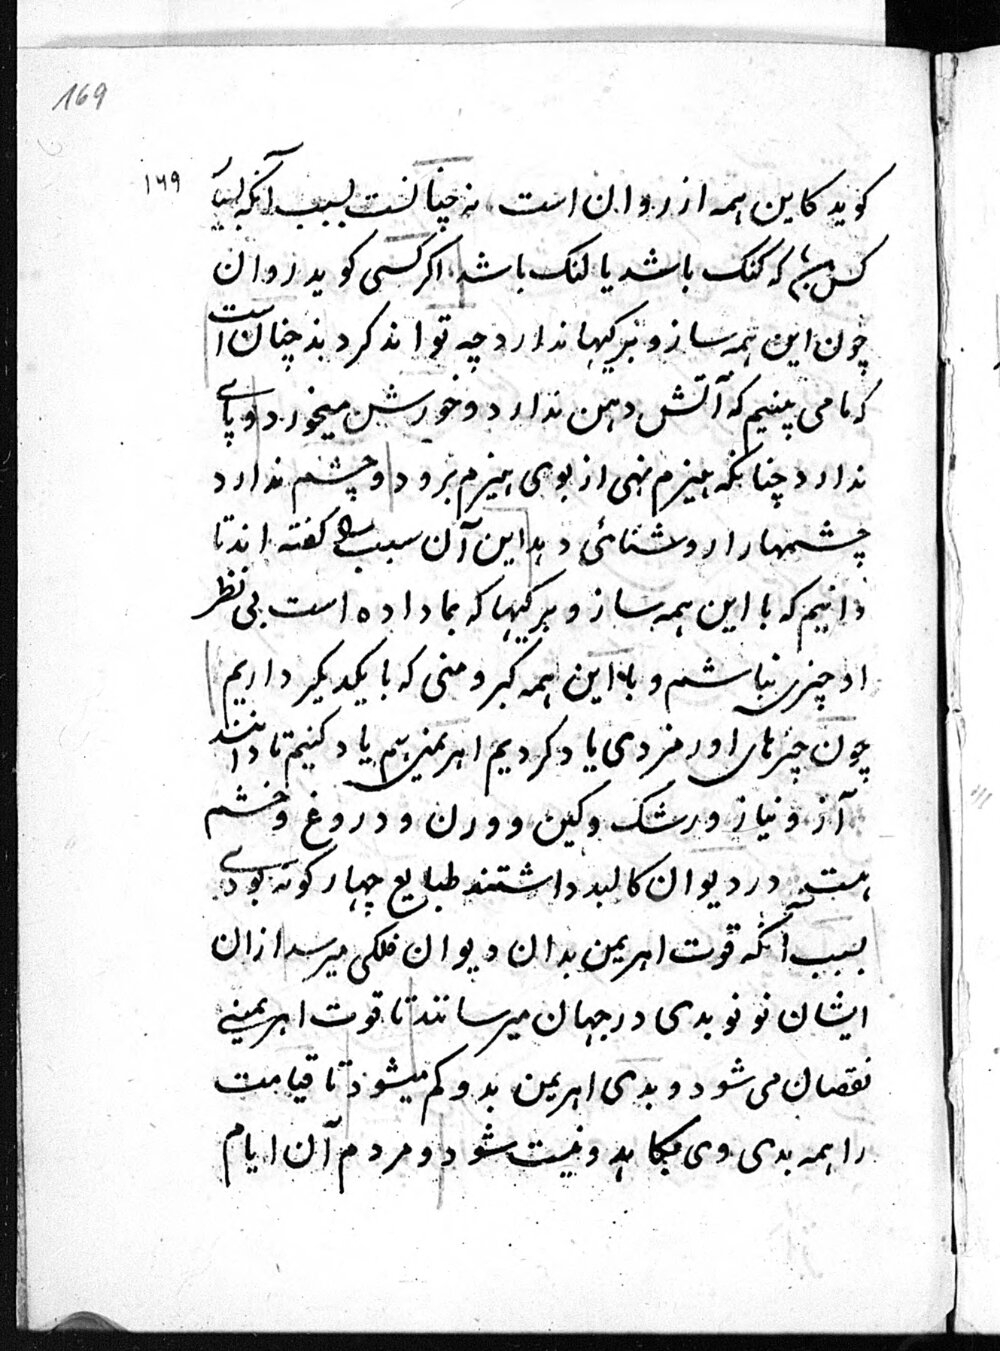 169
۱۶۹
کوید کاین همه از روان است نه چنانست بسبب آنکه بسیا
کس که کنک باشد یا لنک باشد اکر کسی کوید روان
چون این همه ساز و برکیها ندارد چه تواند کرد نه چنان است
که ما می بینیم که آتش دهن ندارد و خورشن میخورد و پای
ندارد چنانکه هیزم نهی از بوی هیزم برود و چشم ندارد
چشمهارا روشنائی دهد این آن سبب کفته اند تا
دانیم که با این همه ساز و برکیها که بما داده است بی نظر
او چیزی نباشم و با این همه کبر و منی که با یکدیکر داریم
چون چیزهای اورمزدی یاد کردیم اهریمنی هم یاد کنیم تا دانند
آز و نیاز و رشک و کین و ورن و دروغ و خشم
هست در دیوان کالبد داشتند طبایع چهار کونه بودی
بسبب آنکه قوت اهریمن بدان دیوان فلکی میرسد ازان
ایشان نو نو بدی در جهان میرسانند تا قوت اهریمنی
نقصان می شود و بدی اهریمن بدو کم میشود تا قیامت
را همه بدی وی بکاهد و نیست شود و مردم آن ایام